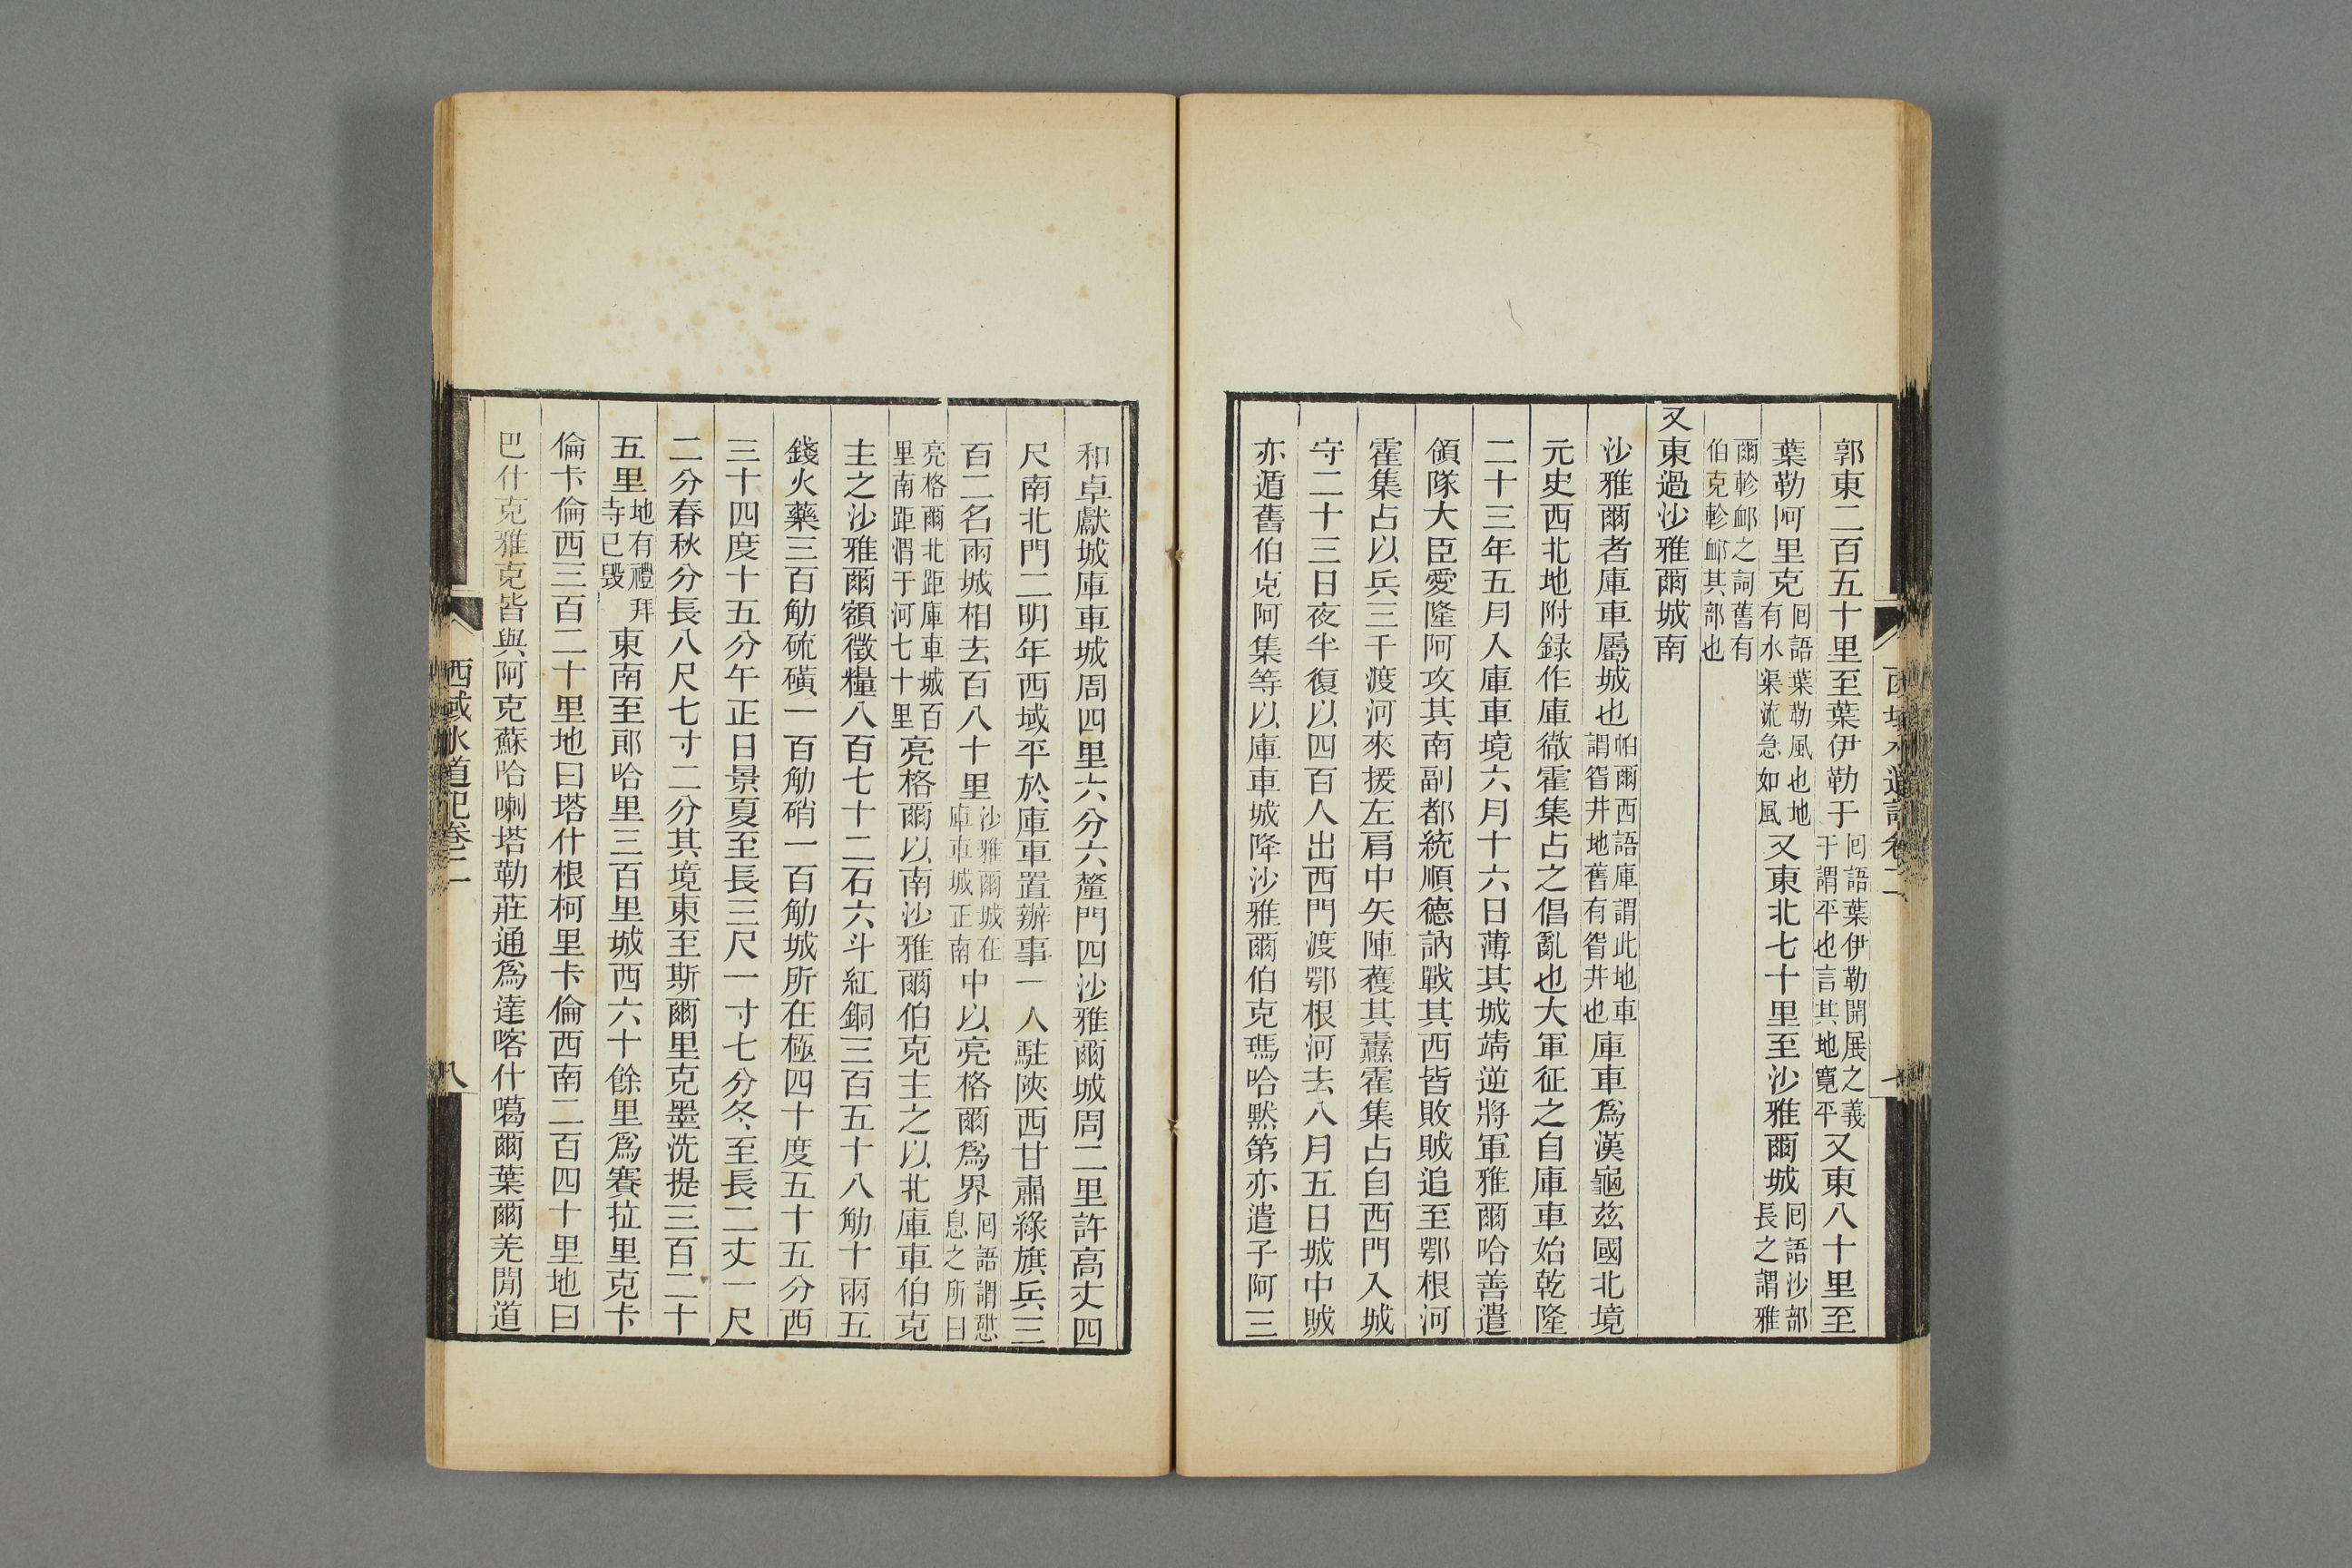 郭東二百五十里至葉伊勒干回語葉伊勒開展之義干謂平也言其地寬平又東八十里至
葉勒阿里克回語葉勒風也地有水渠流急如風又東北七十里至沙雅爾城回語沙部長之謂雅
爾軫䘏之詞舊有伯克軫䘏其部也
又東過沙雅爾城南
沙雅爾者庫車屬城也帕爾西語庫謂此地車謂眢井地舊有眢井也庫車爲漢龜茲國北境
元史西北地附録作庫徹霍集占之倡亂也大軍征之自庫車始乾隆
二十三年五月入庫車境六月十六日薄其城靖逆將軍雅爾哈善遣
領隊大臣愛隆阿攻其南副都統順德訥戰其西皆敗賊追至鄂根河
霍集占以兵三千渡河來援左肩中矢陣蒦其纛霍集占自西門入城
守二十三日夜半復以四百人出西門渡鄂根河去八月五日城中賊
亦遁舊伯克阿集等以庫車城降沙雅爾伯克瑪哈默第亦遣子阿三
和卓獻城庫車城周四里六分六釐門四沙雅爾城周二里許高丈四
尺南北門二明年西域平於庫車置辦事一人駐陝西甘肅綠旗兵三
百二名兩城相去百八十里沙雅爾城在庫車城正南中以亮格爾爲界回語謂憇息之所曰
亮格爾北距庫車城百里南距渭于河七十里亮格爾以南沙雅爾伯克主之以北庫車伯克
主之沙雅爾額徵糧八百七十二石六斗紅銅三百五十八觔十兩五
錢火藥三百觔硫磺一百觔硝一百觔城所在極四十度五十五分西
三十四度十五分午正日景夏至長三尺一寸七分冬至長二丈一尺
二分春秋分長八尺七寸二分其境東至斯爾里克墨洗提三百二十
五里地有禮拜寺已毀東南至郍哈里三百里城西六十餘里爲賽拉里克卡
倫卡倫西三百二十里地曰塔什根柯里卡倫西南二百四十里地曰
巴什克雅克皆與阿克蘇哈喇塔勒莊通爲達喀什噶爾葉爾羌閒道
西域水道記卷二
八